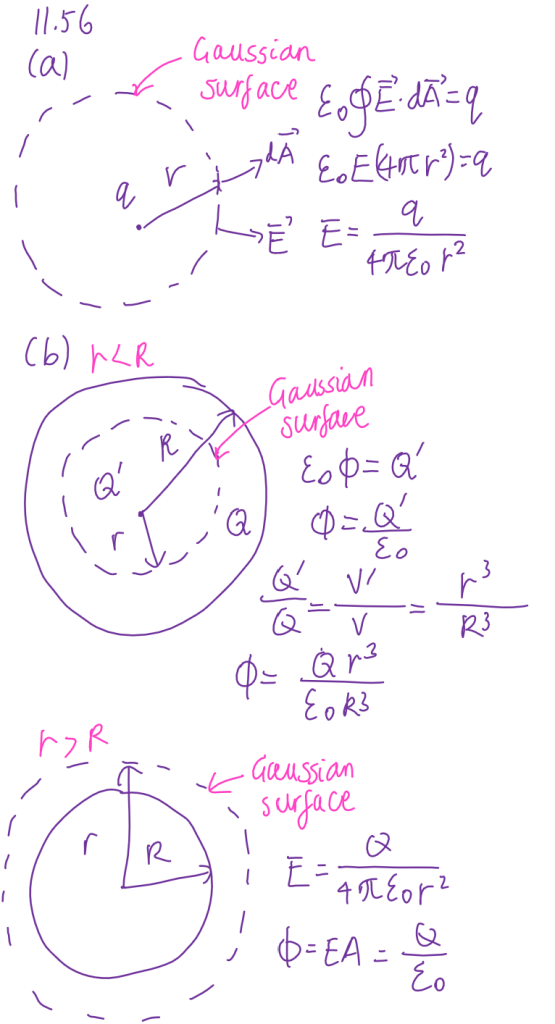 11.56
(a)
Gaussian
surface
ε₀∮E⃗·dA⃗=q
dA⃗
r
ε₀E(4πr²)=q
q
E⃗
E = q / 4πε₀r²
(b) r<R
Gaussian
surface
R
Q'
r
Q
ε₀ϕ=Q'
ϕ=Q'/ε₀
Q'/Q = V'/V = r³/R³
ϕ= Qr³/ε₀R³
r>R
Gaussian
surface
r
R
E = Q / 4πε₀r²
ϕ=EA = Q/ε₀